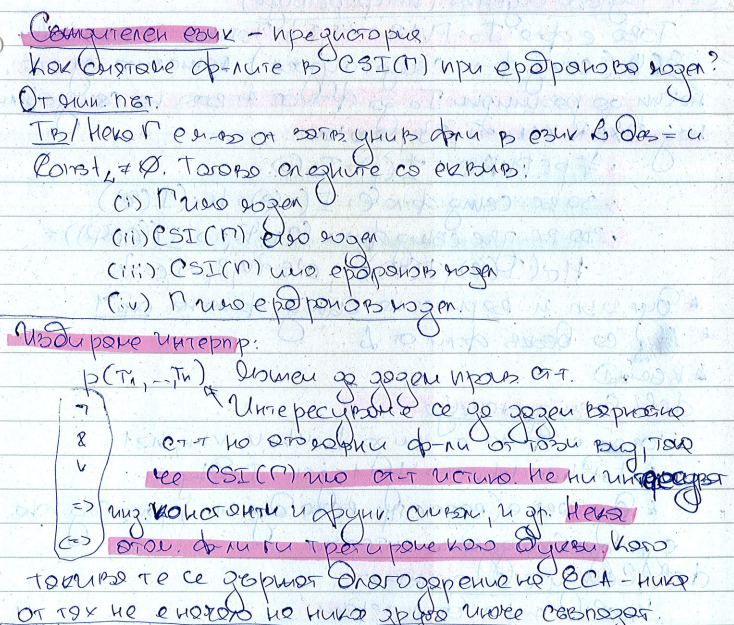 Съждителен език – предистория
Как смятаме ф-лите в CSI(Γ) при ербранов модел?
От мин. път.
Тв/ Нека Γ е мн-во от затв. унив. ф-ли в език L без ≐ и
Const_L ≠ ∅. Тогава следните са еквив:
(i) Γ има модел
(ii) CSI(Γ) има модел
(iii) CSI(Γ) има ербранов модел
(iv) Γ има ербранов модел.
Избиране интерпр:
p(τ₁, ..., τₙ) Можем да дадем произв. ст-т.
¬ Интересуваме се да дадем вярностна
& ст-т на атомарни ф-ли от този вид, така
∨ че CSI(Γ) има ст-т истина. Не ни интересуват
=> инд. константи и функ. символи, и др. Нека
<=> атом. ф-ли ги третираме като букви. Като
такива те се държат благодарение на ЗСА – никя
от тях не е начало на никя друга иначе съвпадат.